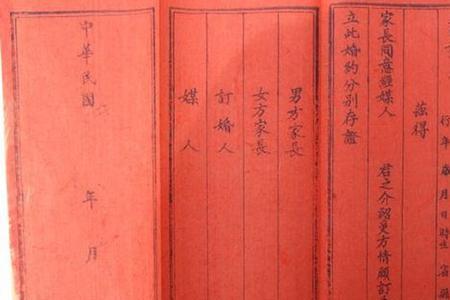 行年 歲 月 日 時生 
茲得
家長同意經媒人 君之介紹更方情願訂
立此婚約分別存證
男方家長
女方家長
訂婚人
媒人
中華民國 年 月